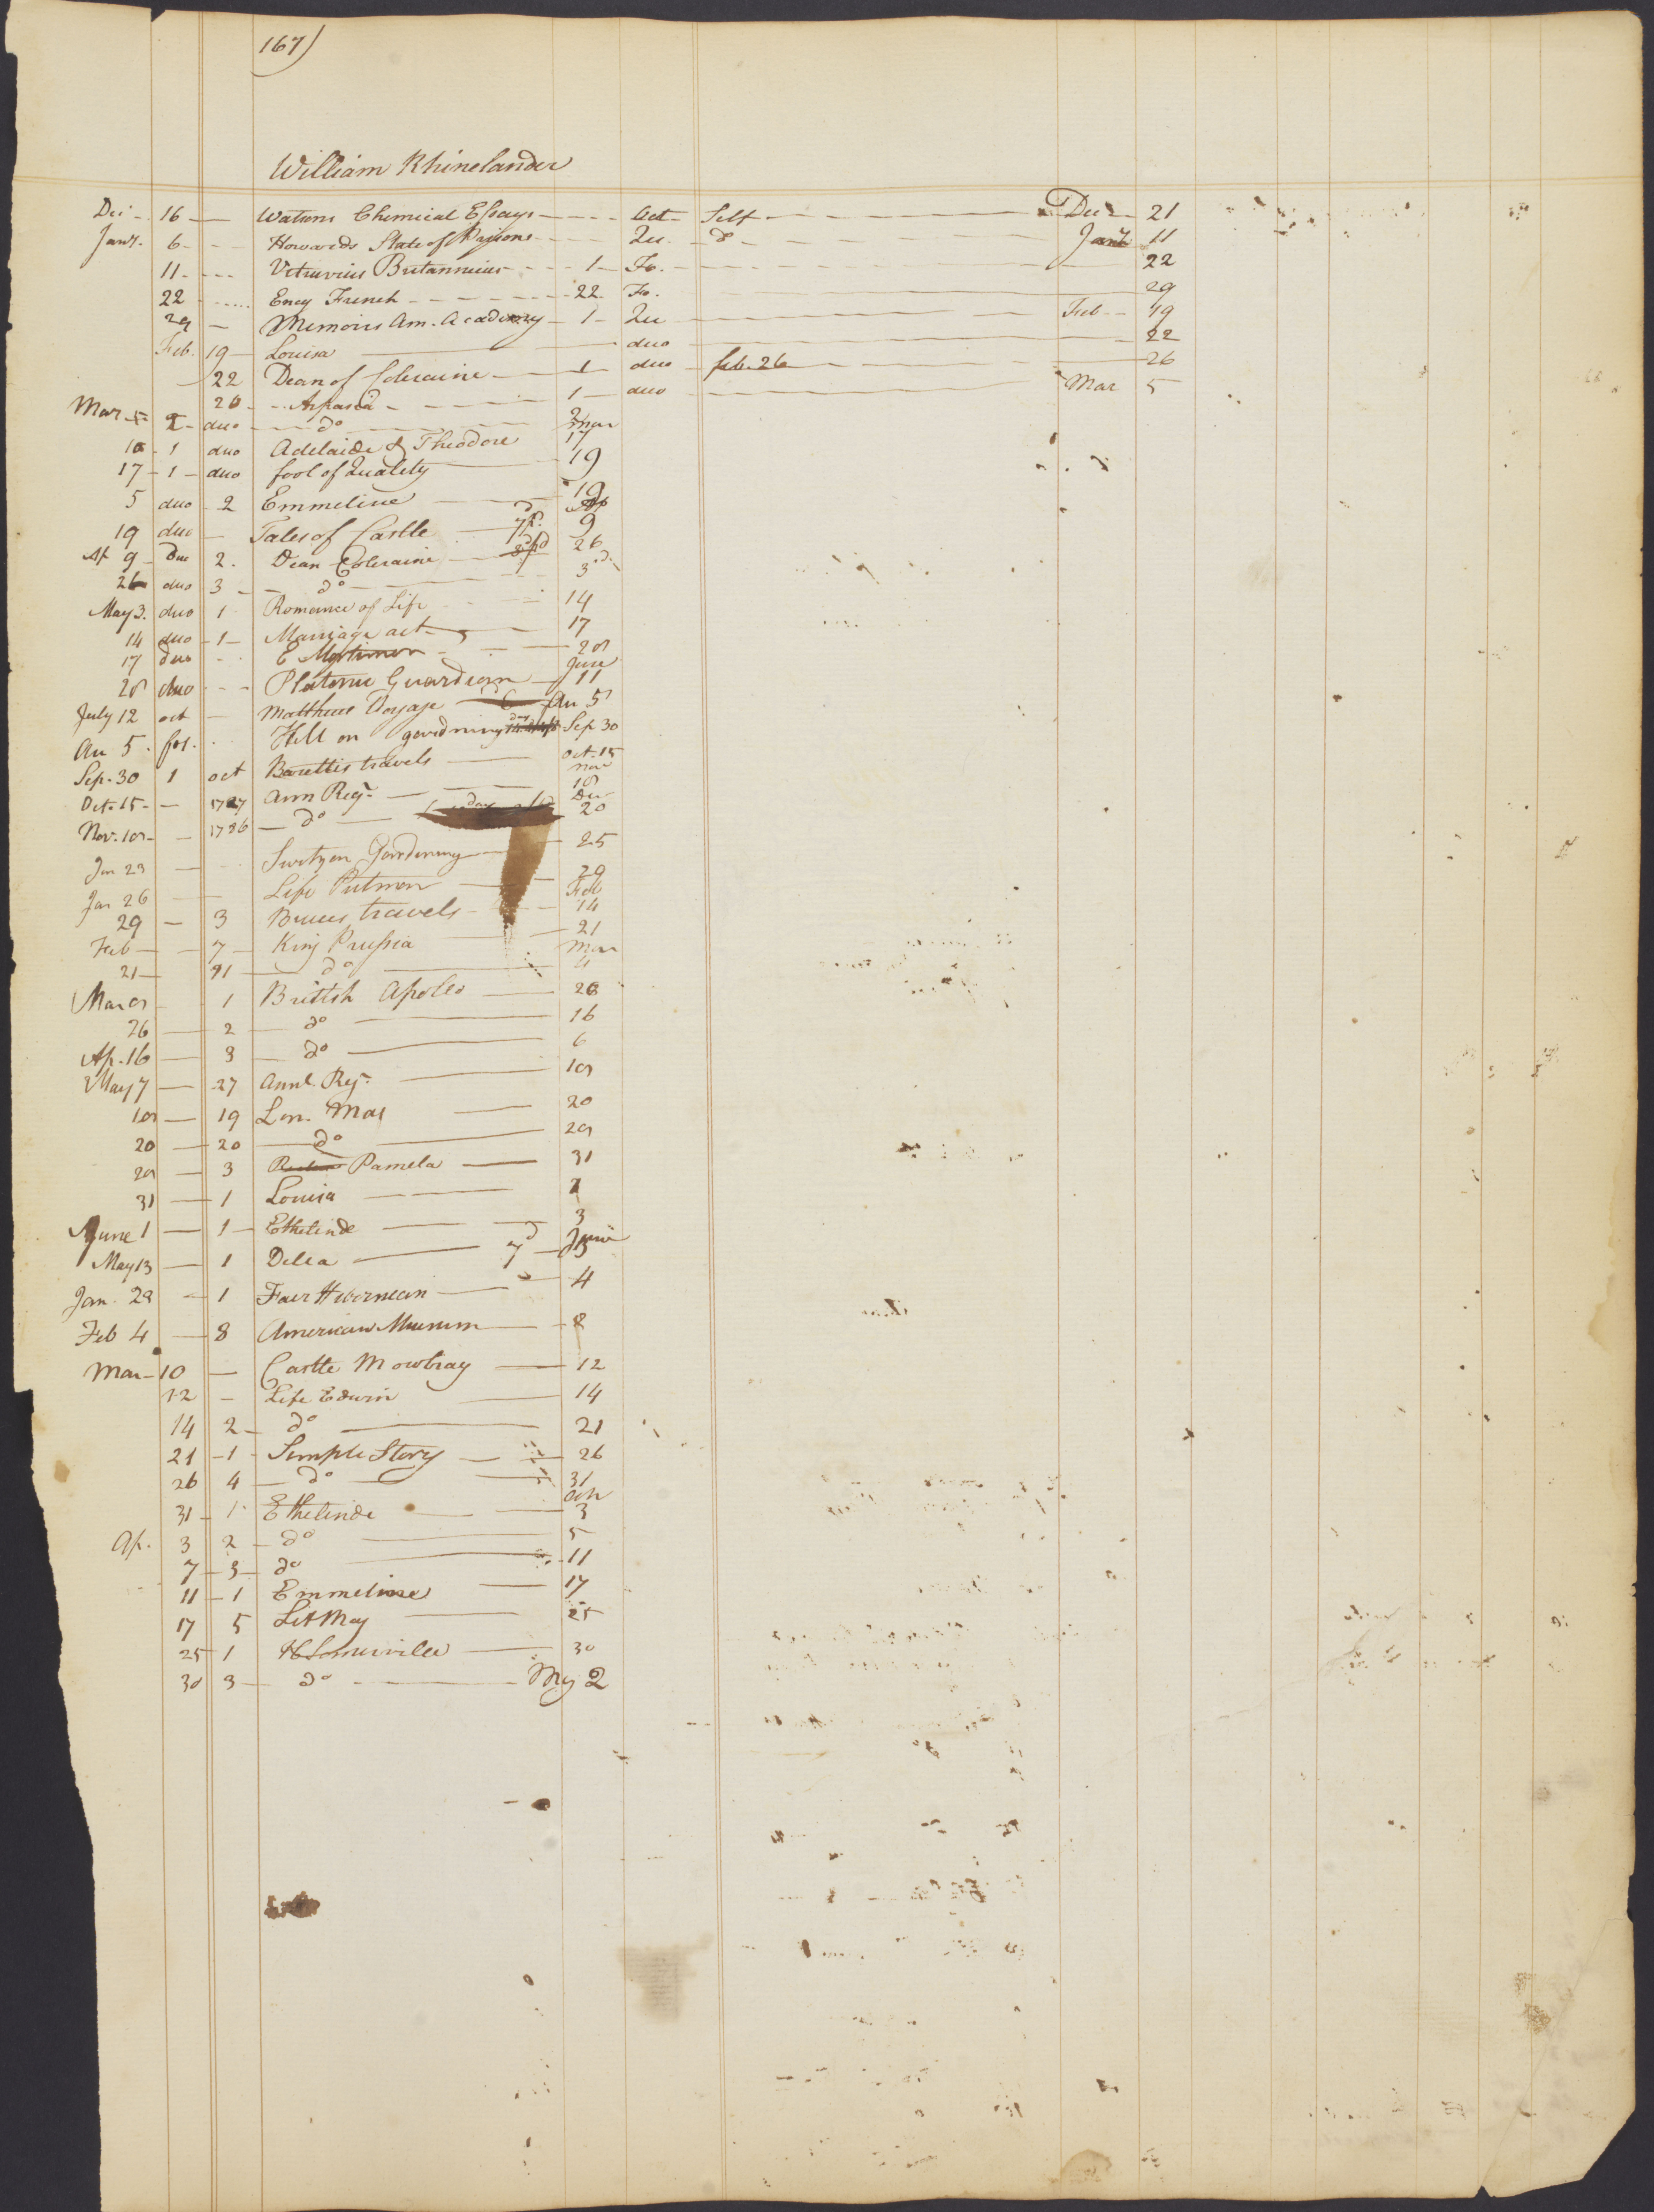 167)
William Rhinelander
Dec - 16 — Watsons Chemical Essays - - - - Oct - Self - - - - Dec - 21
Jany. 6 - - - Howards State of Prisons - - - - Qu. - do - - - - Jany 11
11 - - - - Vitruvius Britannicus - - - 1 - Fo. - - - - 22
22 - - - - Ency French - - - - - - 22 Fo. — 29
29 — Memoirs Am. Academy - 1 - Qu — Feb - - 19
Feb. 19 — Louisa — duo — 22
22 Dean of Coleraine — 1 — duo - feb. 26 — 26
26 - - Aspasia - - - - 1 — duo - - - - Mar 5
Mar - 5 - 2 - duo - - - do - - - -
10 - 1 duo Adelaide & Theodore 17
17 - 1 - duo fool of Quality — 19
5 duo 2 Emmeline — 19
19 duo — Tales of Castle — 9
Ap 9 - Duo 2. Dean Coleraine — 26
26 duo 3 - - do - - - 3
May 3. duo 1 Romance of Life - - - 14
14 duo - 1 - Marriage act - — 17
17 duo - - E Mortimer - - — 28
28 duo - - - Platonic Guardian — June 11
July 12 oct — Matthews Voyage — Au 5
Au 5. fol. Hill on gardning Sep 30
Sep. 30 1 oct Barettis travels — Oct. 15
Oct. 15 - — 1787 Ann Reg. — Nov 18
Nov. 18 - — 1786 — do — Dec 20
Jan 23 — Switzer Gardening — 25
Jan 26 — Life Putman — 29
29 — 3 Bruces travels - - - Feb 14
Feb — 7 — King Prussia — 21
21 — 11 — do — Mar
Mar 8 1 British Apollo — 26
26 — 2 — do — 16
Ap. 16 — 3 — do — 6
May 7 — 27 Annl. Reg. — 18
18 — 19 Lon. Mag — 20
20 — 20 — do — 28
28 — 3 Pamela — 31
31 — 1 Louisa — 1
June 1 — 1 — Ethelinde — 3
May 13 — 1 Delia — 7d — June 13
Jan. 29 — 1 Fair Hibernean — 4
Feb 4 — 8 American Museum — 8
Mar - 10 — Castle Mowbray — 12
12 - Life Edwin — 14
14 2 - do — 21
21 - 1 - Simple Story — 26
26 4 — do — 31
31 - 1 Ethelinde — 3
Ap. 3 2 - do — 5
7 - 3 - do — 11
11 - 1 Emmeline — 17
17 5 Lit Mag — 25
25 - 1 H Somerville — 30
30 3 — do - — My 2